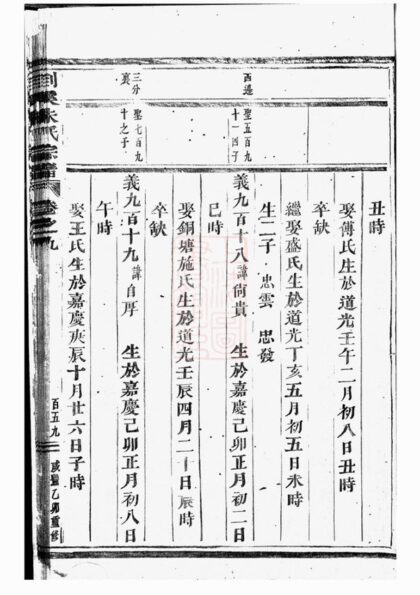 丑時
娶傅氏生於道光壬午二月初八日丑時
卒缺
繼娶盛氏生於道光丁亥五月初五日未時
生二子 忠雲 忠發
西邊
聖五百九十一四子
義九百十八 諱尙貴 生於嘉慶己卯正月初二日
巳時
娶銅塘施氏生於道光壬辰四月二十日辰時
卒缺
三分裏
聖七百九十之子
義九百十九 諱自厚 生於嘉慶己卯正月初八日
午時
娶王氏生於嘉慶庚辰十月廿六日子時
朱氏宗譜 卷之九 百五九 咸豐乙卯重修